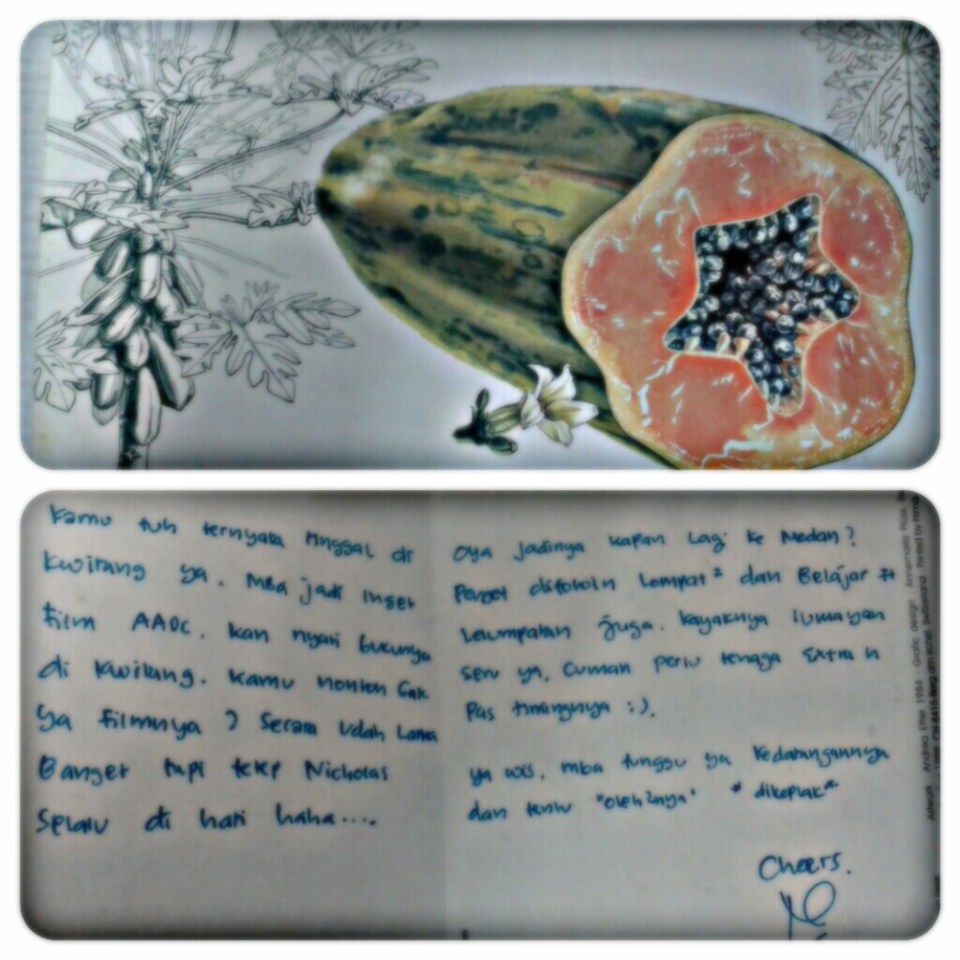 Kamu tuh ternyata tinggal di
Kwitang ya. Mba jadi inget
film AADC. kan nyari bukunya
di Kwitang. Kamu nonton Gak
ya filmnya ? Secara Udah Lama
Banget tapi tetep Nicholas
Selalu di hati haha....
Oya jadinya kapan Lagi ke Medan?
Pengen difotoin Lompat² dan Belajar
Lompatan juga. kayaknya lumayan
seru ya, Cuman perlu tenaga Extra n
Pas timingnya :).
ya wis. mba tunggu ya Kedatangannya
dan tentu "oleh2nya" * dikeplak*
Cheers.
Artwork Andrea Etter 1984 Grafic design Annemarie